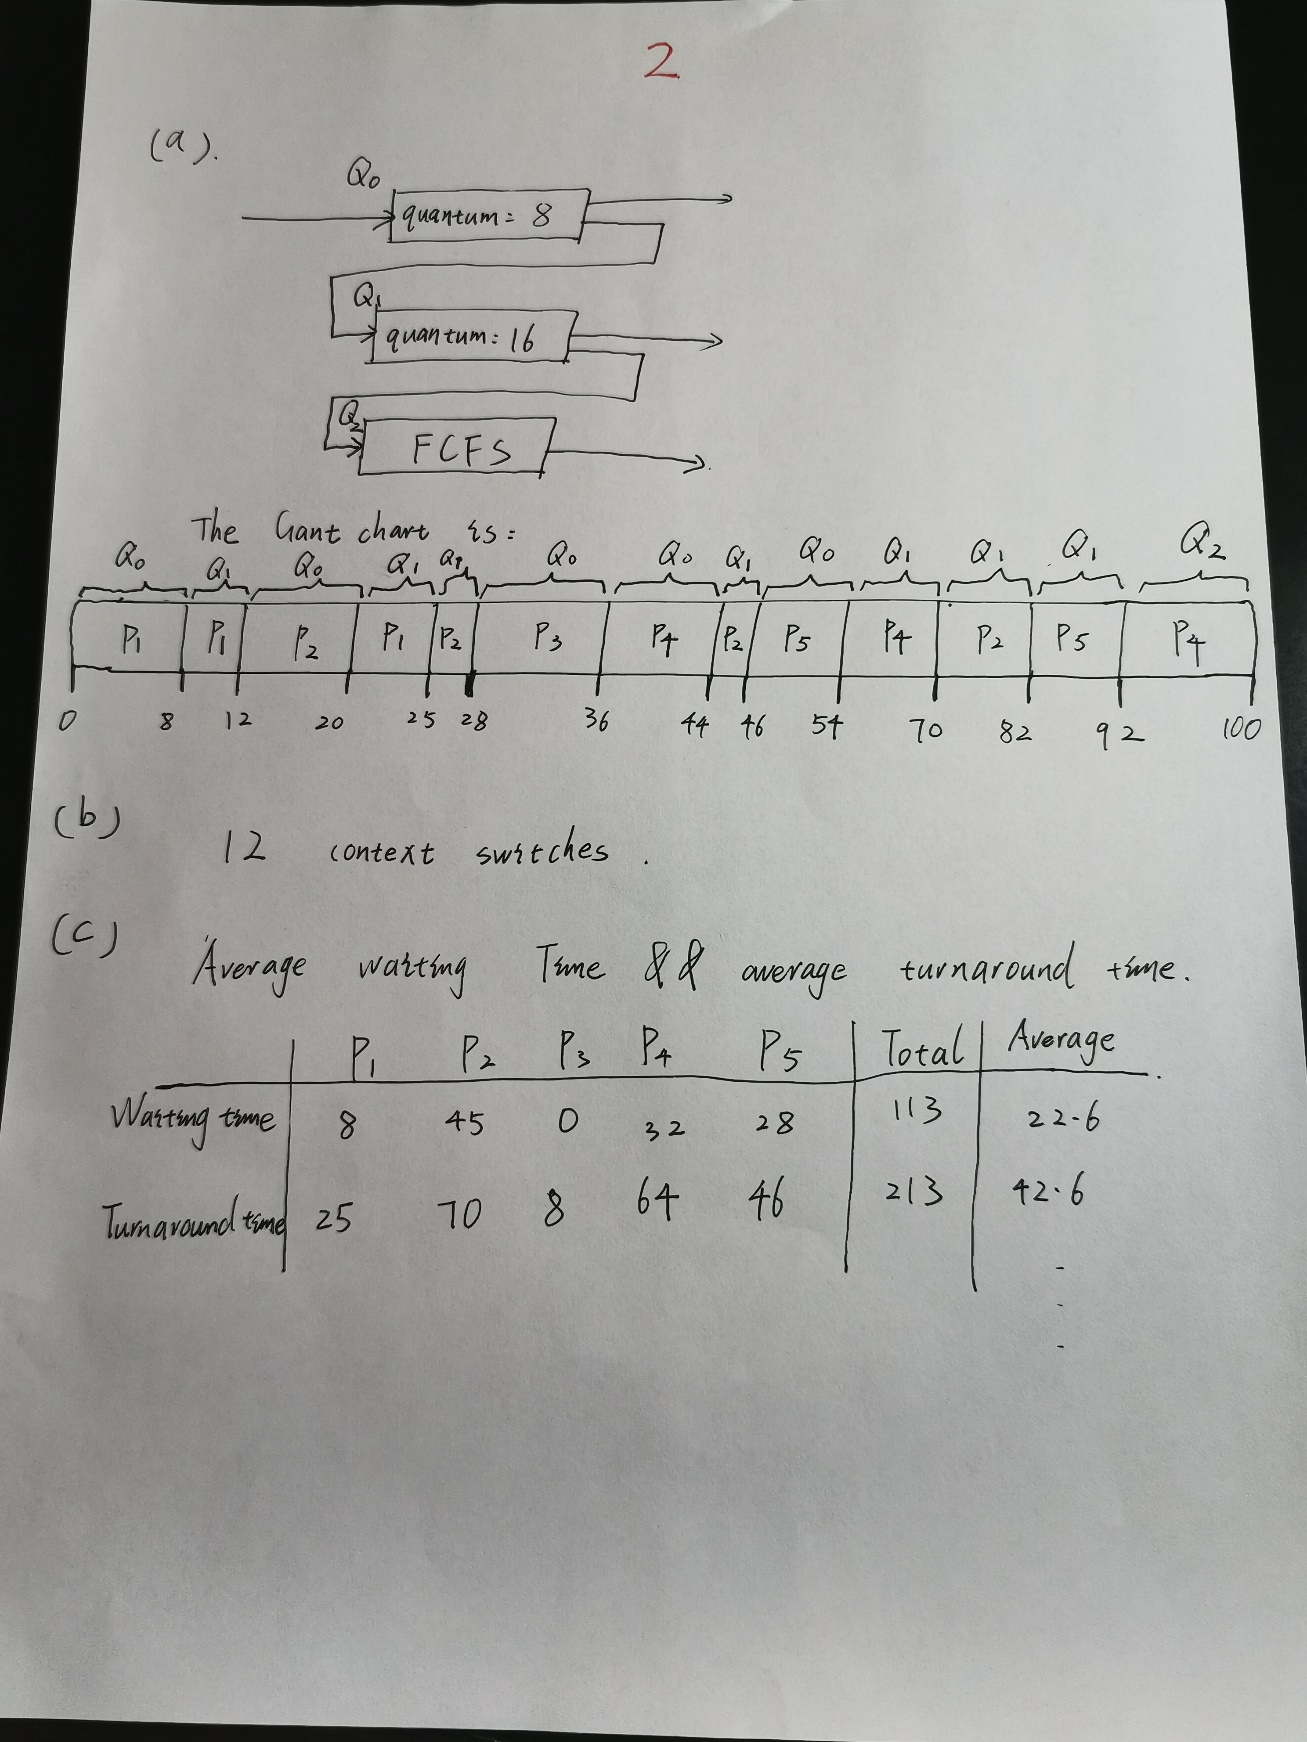 2
(a).
Q0
quantum = 8
Q1
quantum: 16
Q2
FCFS
The Gant chart is:
Q0 Q1 Q0 Q1 Q1 Q0 Q0 Q1 Q0 Q1 Q1 Q1 Q2
P1 P1 P2 P1 P2 P3 P4 P2 P5 P4 P2 P5 P4
0 8 12 20 25 28 36 44 46 54 70 82 92 100
(b)
12 context switches.
(c)
Average waiting Time && average turnaround time.
P1 P2 P3 P4 P5 Total Average
Waiting time 8 45 0 32 28 113 22.6
Turnaround time 25 70 8 64 46 213 42.6